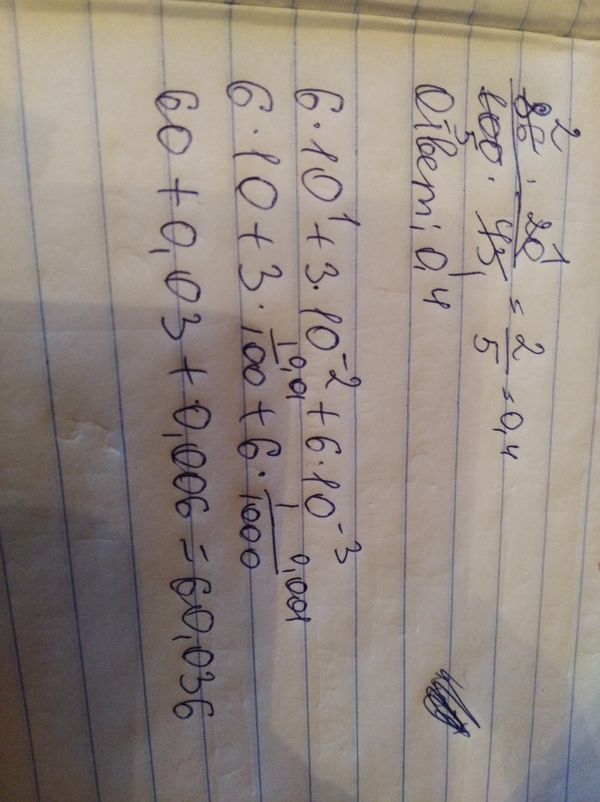 86² · 20¹ / 100₅ · 43₁ = 2/5 = 0,4
Ответ; 0,4
6·10¹ + 3·10⁻² + 6·10⁻³
6·10 + 3·1/100 + 6·1/1000
0,01 0,001
60 + 0,03 + 0,006 = 60,036